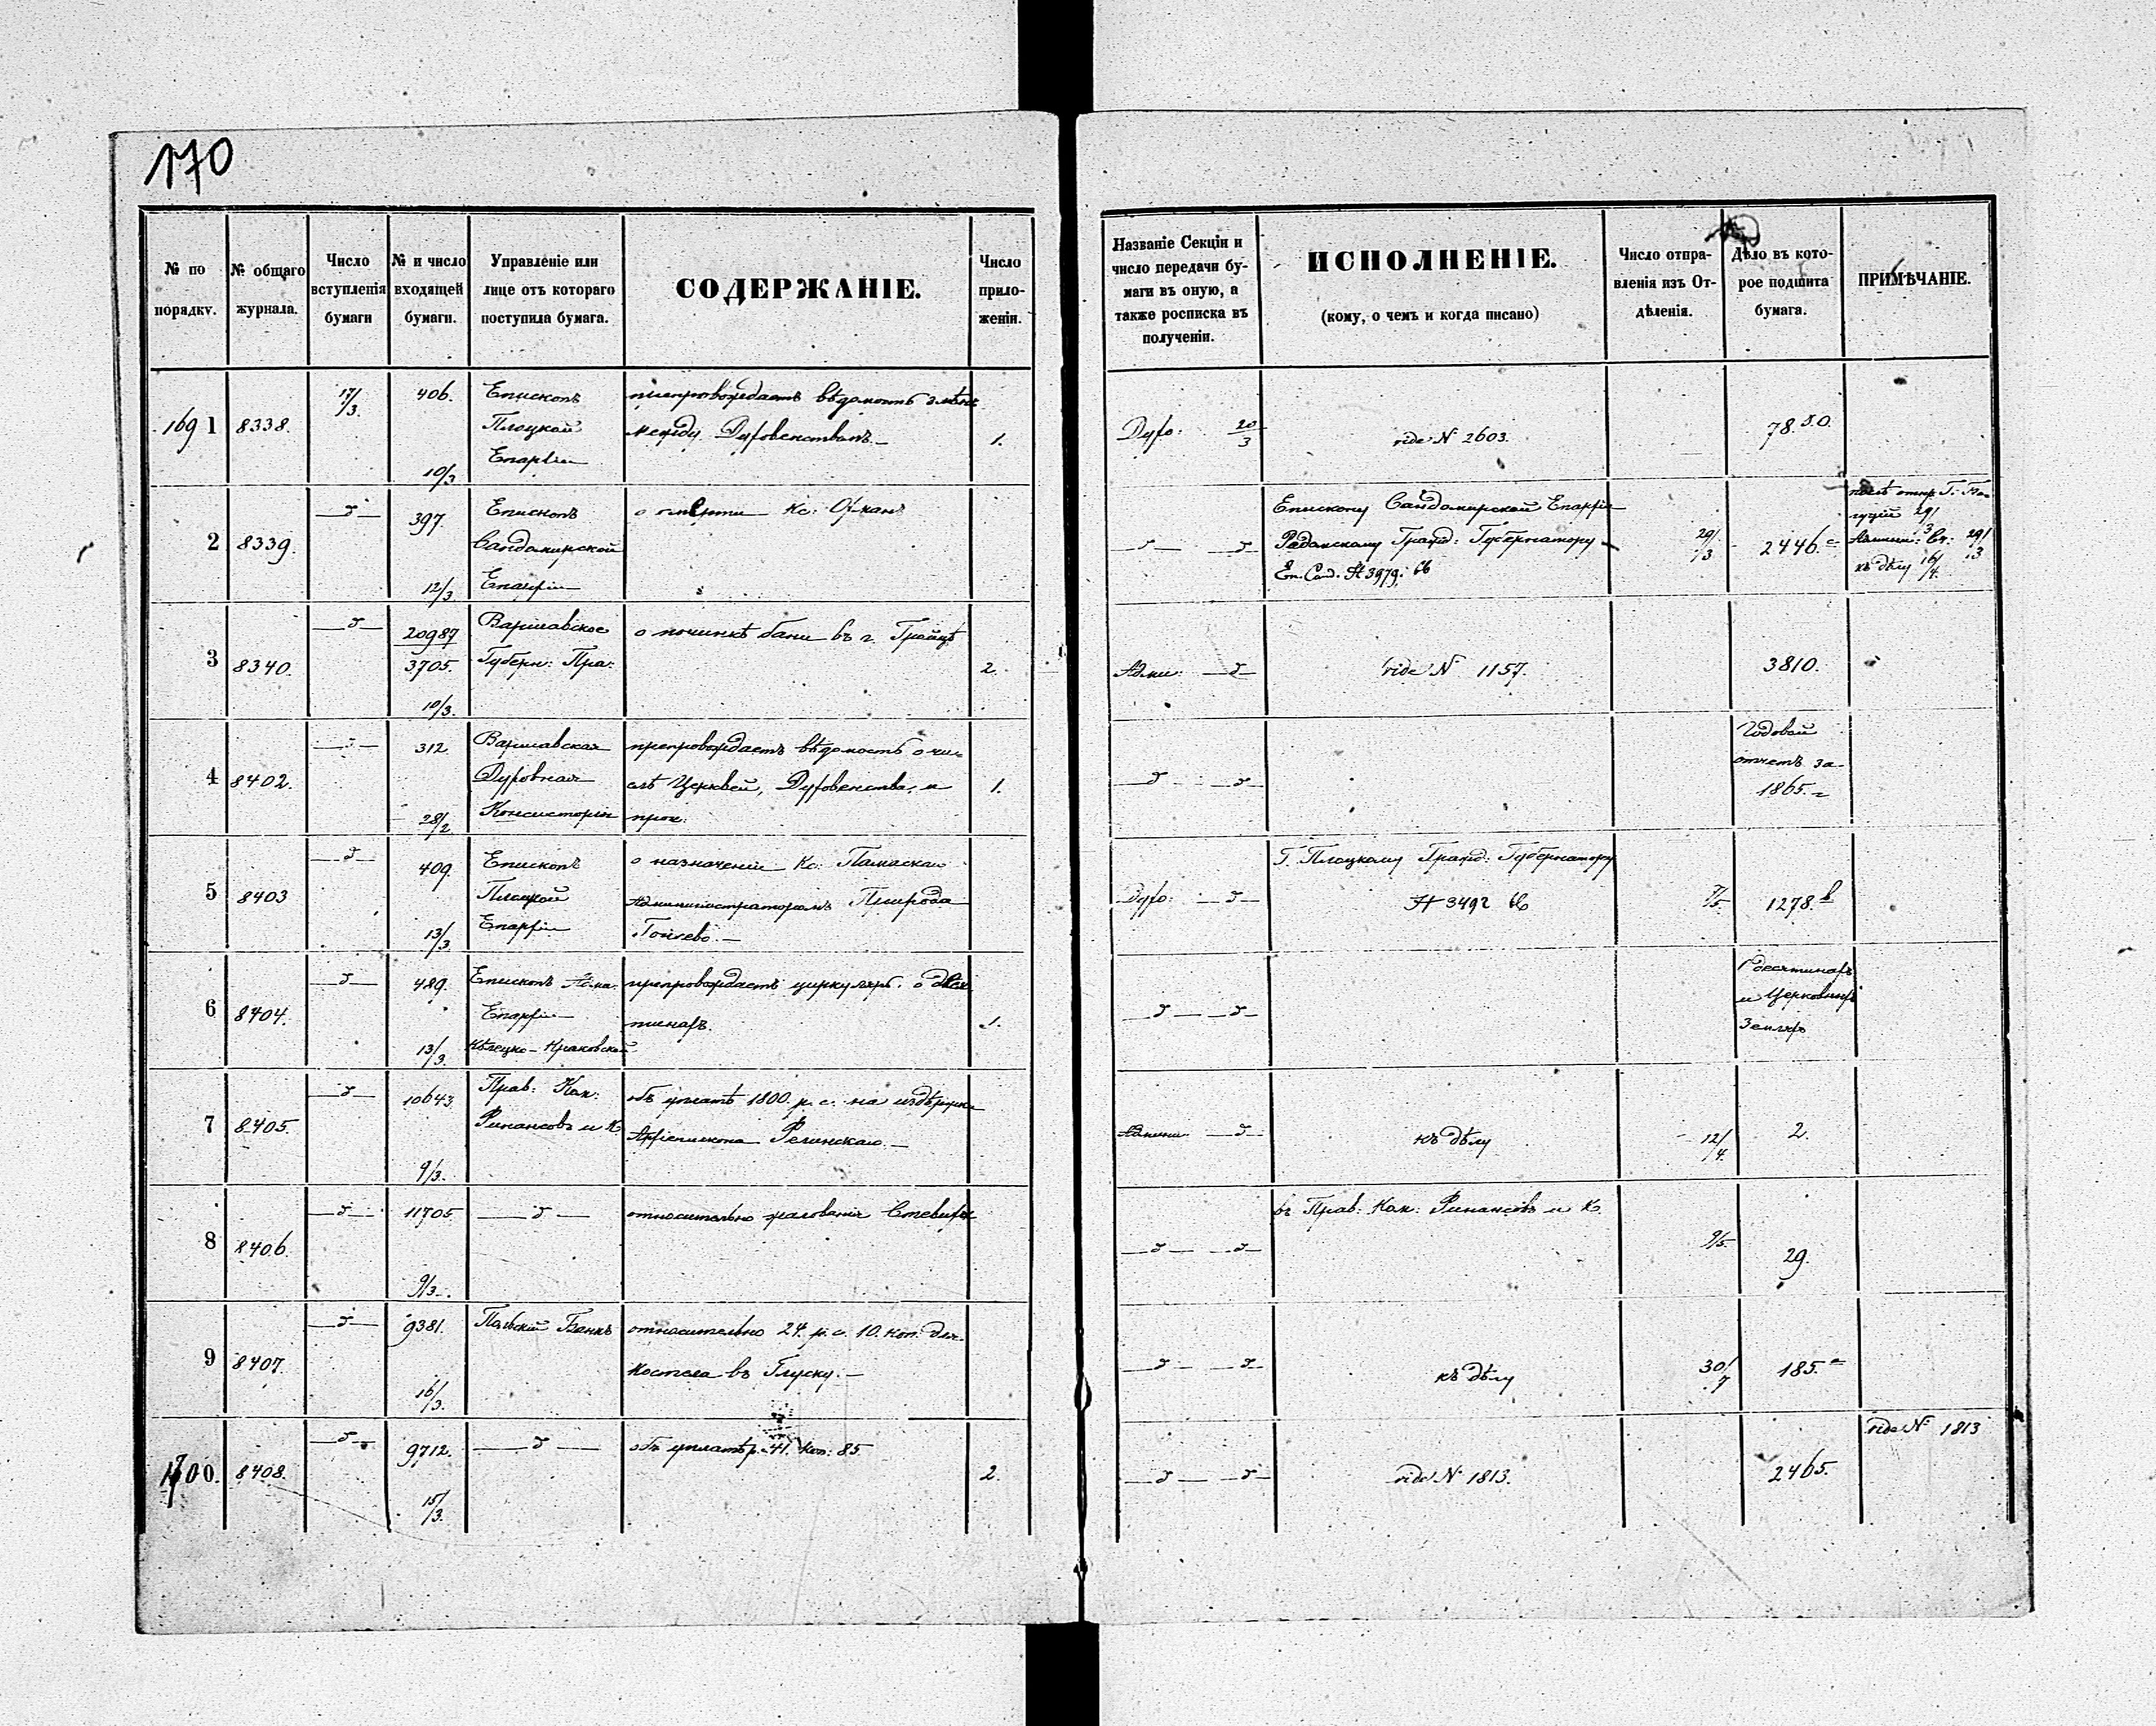 170
№ по порядку.
№ общаго журнала.
Число вступленія бумаги
№ и число входящей бумаги.
Управленіе или лице отъ котораго поступила бумага.
СОДЕРЖАНІЕ.
Число прило-
женіи.
Названіе Секціи и
число передачи бу-
маги въ оную, а
также росписка въ
полученіи.
ИСПОЛНЕНІЕ.
(кому, о чемъ и когда писано)
Число отпра-
вленія изъ От-
дѣленія.
Дѣло въ кото-
рое подшита
бумага.
ПРИМѢЧАНІЕ.
169 1
8338.
17/3.
406.
10/3
Епископъ
Плоцкой
Епархіи
препровождаетъ вѣдомость
между Духовенствомъ.—
1.
Духо: 20/3
vide N 2603.
78.
2
8339.
—d—
397.
12/3
Епископъ
Сандомирской
Епархіи
о смерти Кс:
—d— —d
Епископу Сандомирской Епархіи
Радомскому Гражд: Губернатору
Еп. Санд. № 3979. 66
29/3
2446. c
къ дѣлу 16/4.
3
8340.
—d—
20987
3705.
10/3.
Варшавское
Губерн: Пра:
о починкѣ бани въ г. Гройцѣ
2.
Адми: —d—
vide N 1157.
3810.
4
8402.
—d—
312
28/2
Варшавская
Духовная
Консисторія
препровождаетъ вѣдомость о чи-
слѣ Церквей, Духовенства, и
проч:
1.
—d— —d—
Годовой
отчетъ за
1865.
5
8403
—d—
409.
13/3
Епископъ
Плоцкой
Епархіи
о назначеніи Кс:
Администраторомъ
Духо: —d—
Г. Плоцкому Гражд: Губернатору
№ 3492 66
7/5.
1278. b
6
8404.
—d—
489.
13/3.
Епископъ
Епархіи
Кѣлецко-Краковской
препровождаетъ циркуляръ о деся-
тинахъ.
1.
—d— —d—
О десятинахъ
и Церковныхъ
Земляхъ
7
8405.
—d—
10643
9/3.
Прав: Ком:
Финансовъ и К
объ уплатѣ 1800 р. с. на издержки
Архіепископа Фелинскаго.—
Админи —d—
къ дѣлу
12/4.
2.
8
8406.
—d—
11705
9/3.
—d—
относительно жалованія
—d— —d—
въ Прав: Ком: Финансовъ и К.
9/5.
29.
9
8407.
—d—
9381.
16/3.
Польскій Банкъ
относительно 24. р. с. 10. коп. для
костела въ Глуску.—
—d— —d—
къ дѣлу
30/7
185. a
1700.
8408.
—d—
9712.
15/3.
—d—
объ уплатѣ р. 41. коп: 85
2.
—d— —d—
vide N 1813.
2465.
vide N 1813